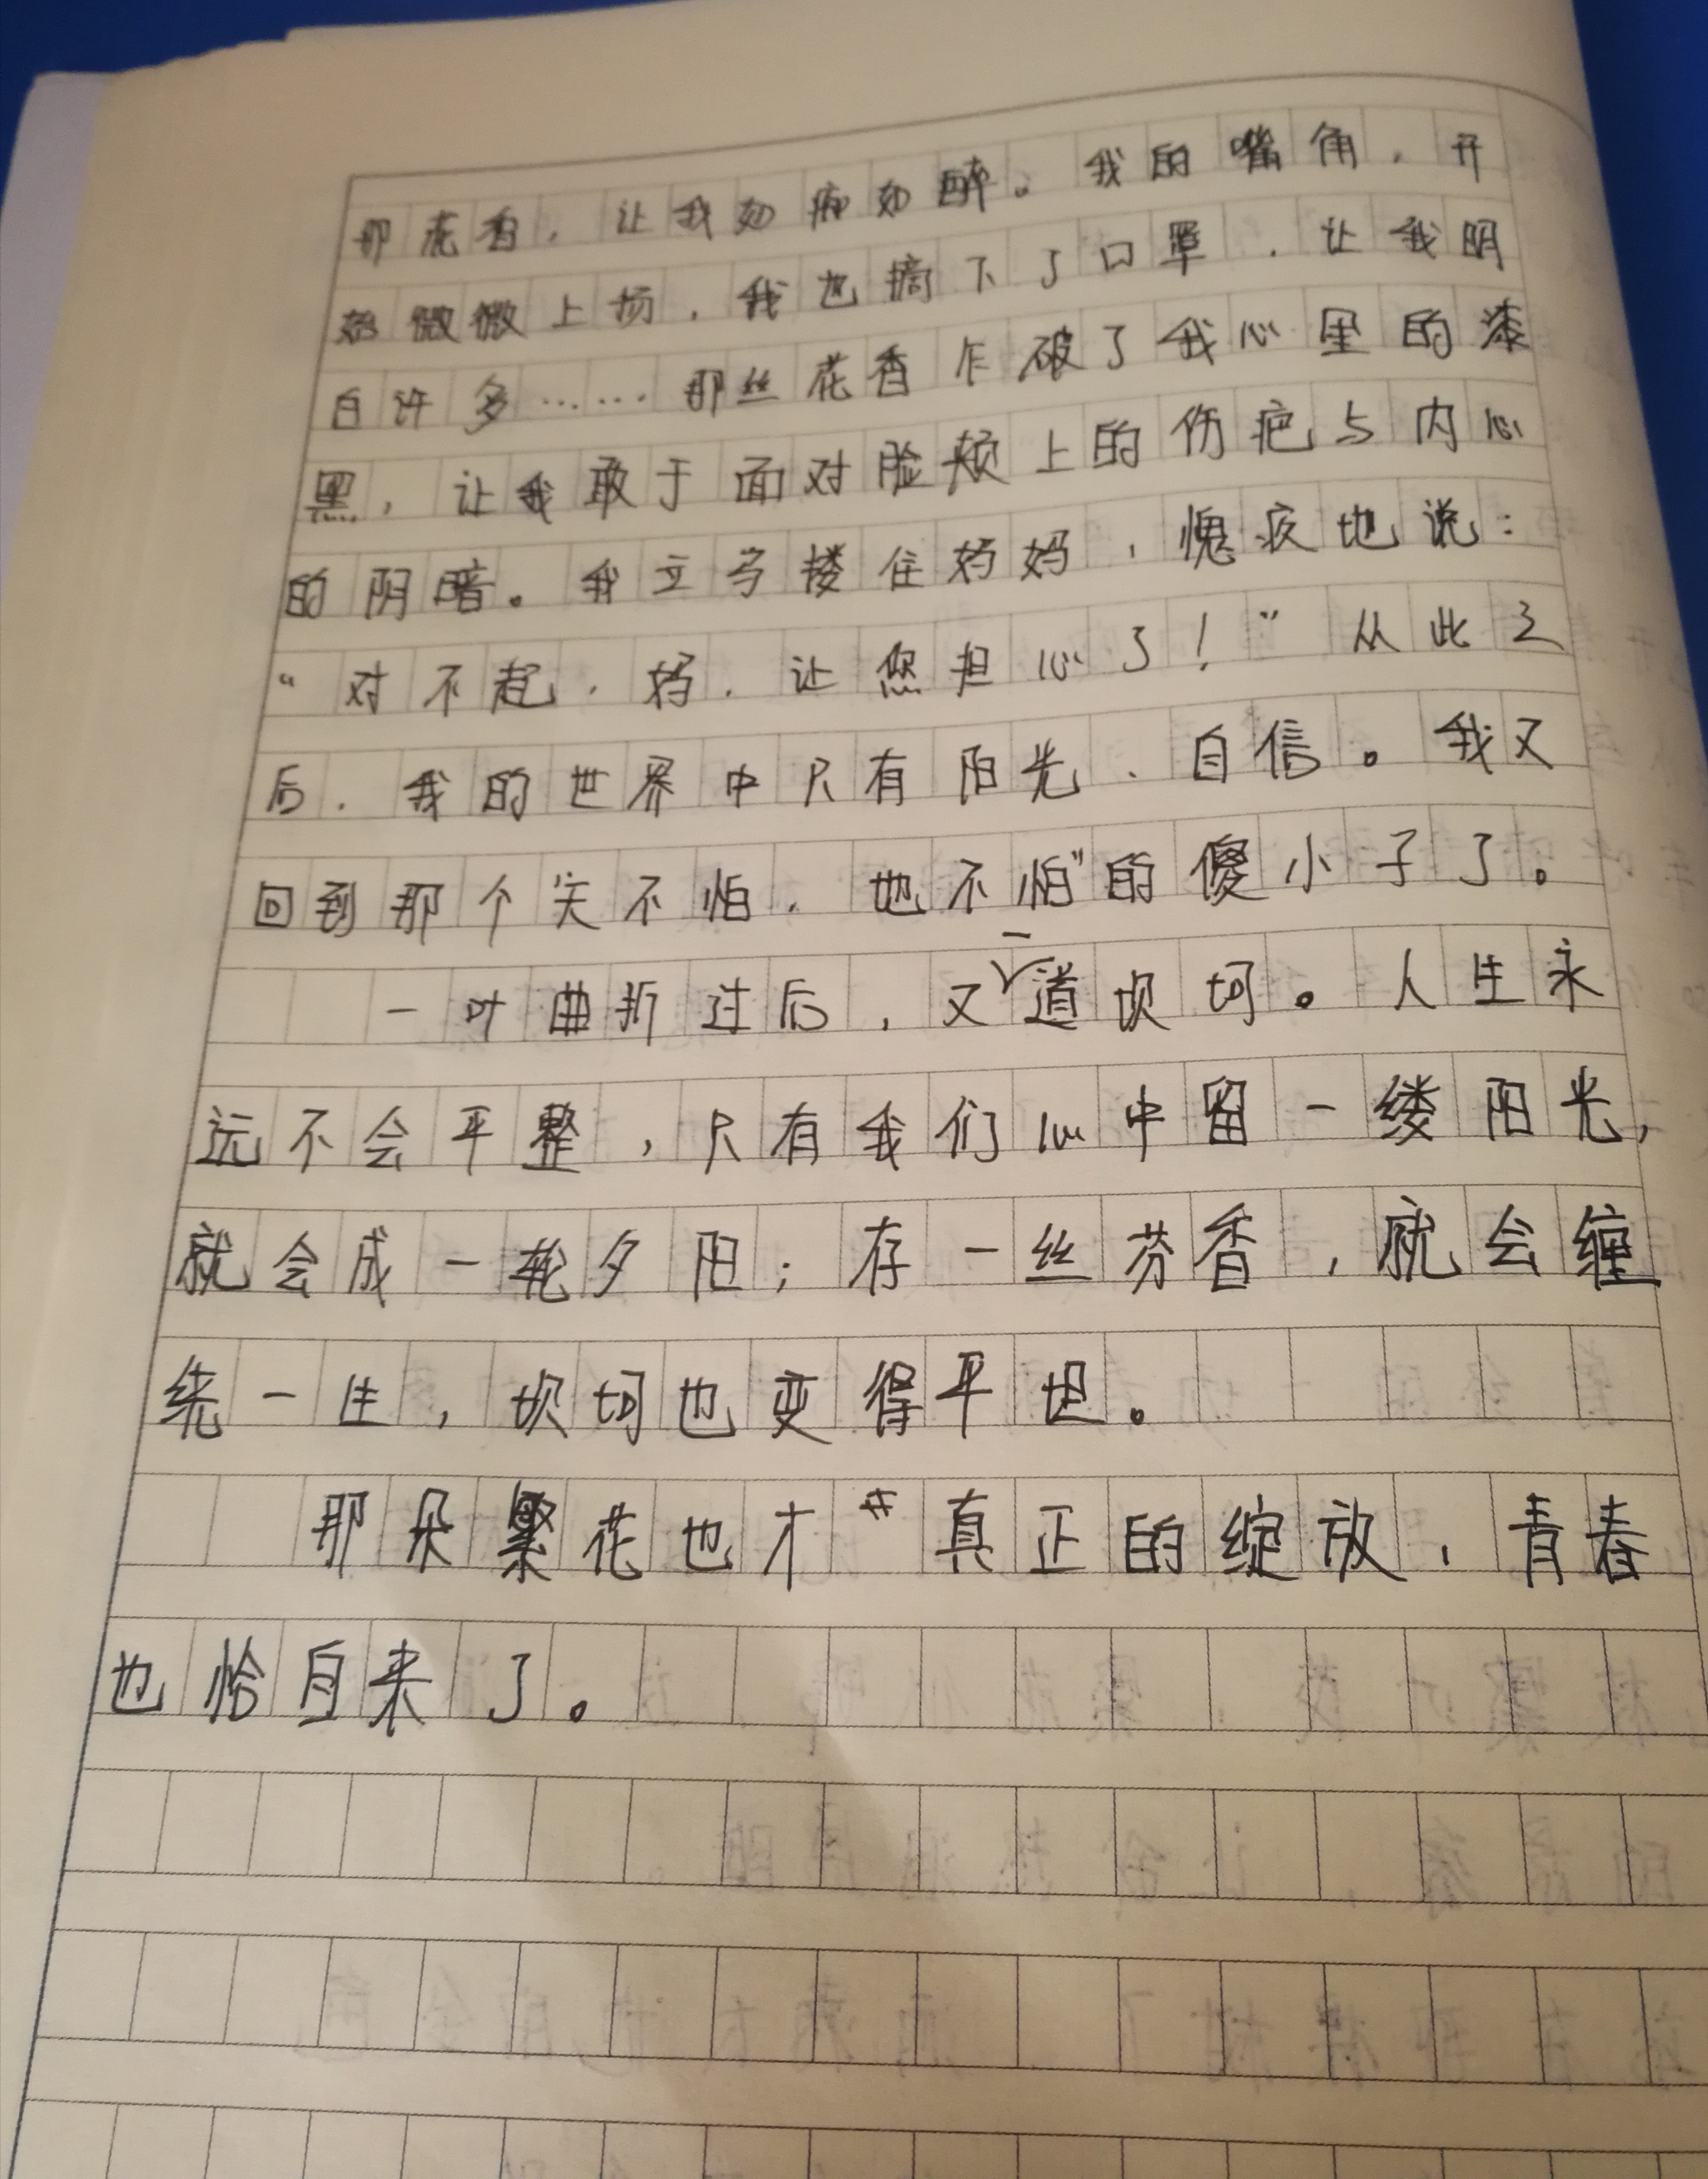 那花香，让我如痴如醉。我的嘴角，开
始微微上扬，我也摘下了口罩，让我明
白许多……那丝花香乍破了我心里的漆
黑，让我敢于面对脸颊上的伤疤与内心
的阴暗。我立马搂住妈妈，愧疚地说：
“对不起，妈，让您担心了！”从此之
后，我的世界中只有阳光、自信。我又
回到那个“天不怕，地不怕”的傻小子了。
一叶曲折过后，又一道坎坷。人生永
远不会平整，只有我们心中留一缕阳光，
就会成一轮夕阳；存一丝芬香，就会缠
绕一生，坎坷也变得平坦。
那朵繁花也才真正的绽放，青春
也恰自来了。